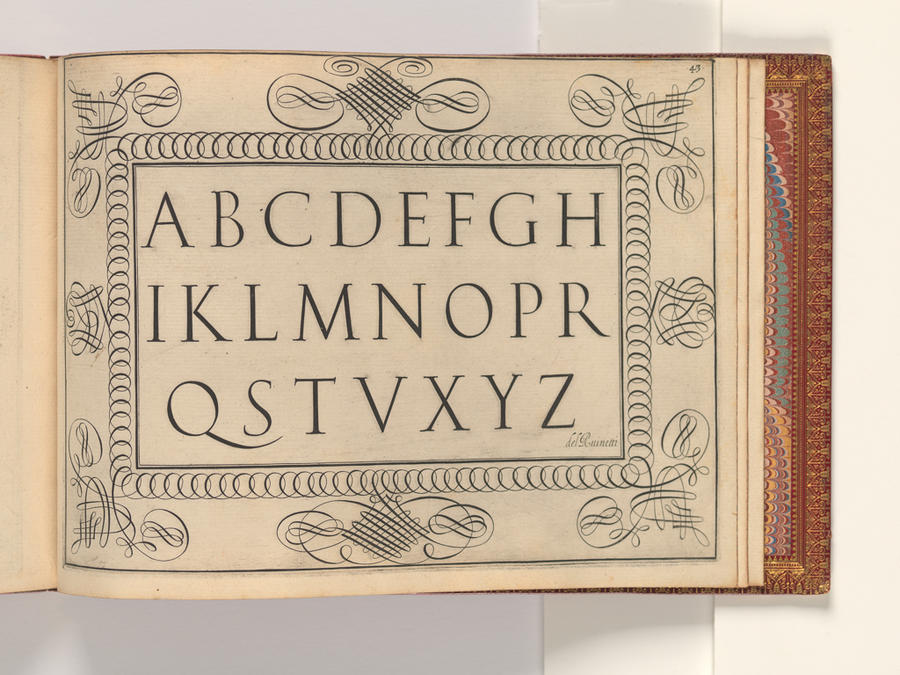 43
A B C D E F G H
I K L M N O P R
Q S T V X Y Z
del Ruinetti